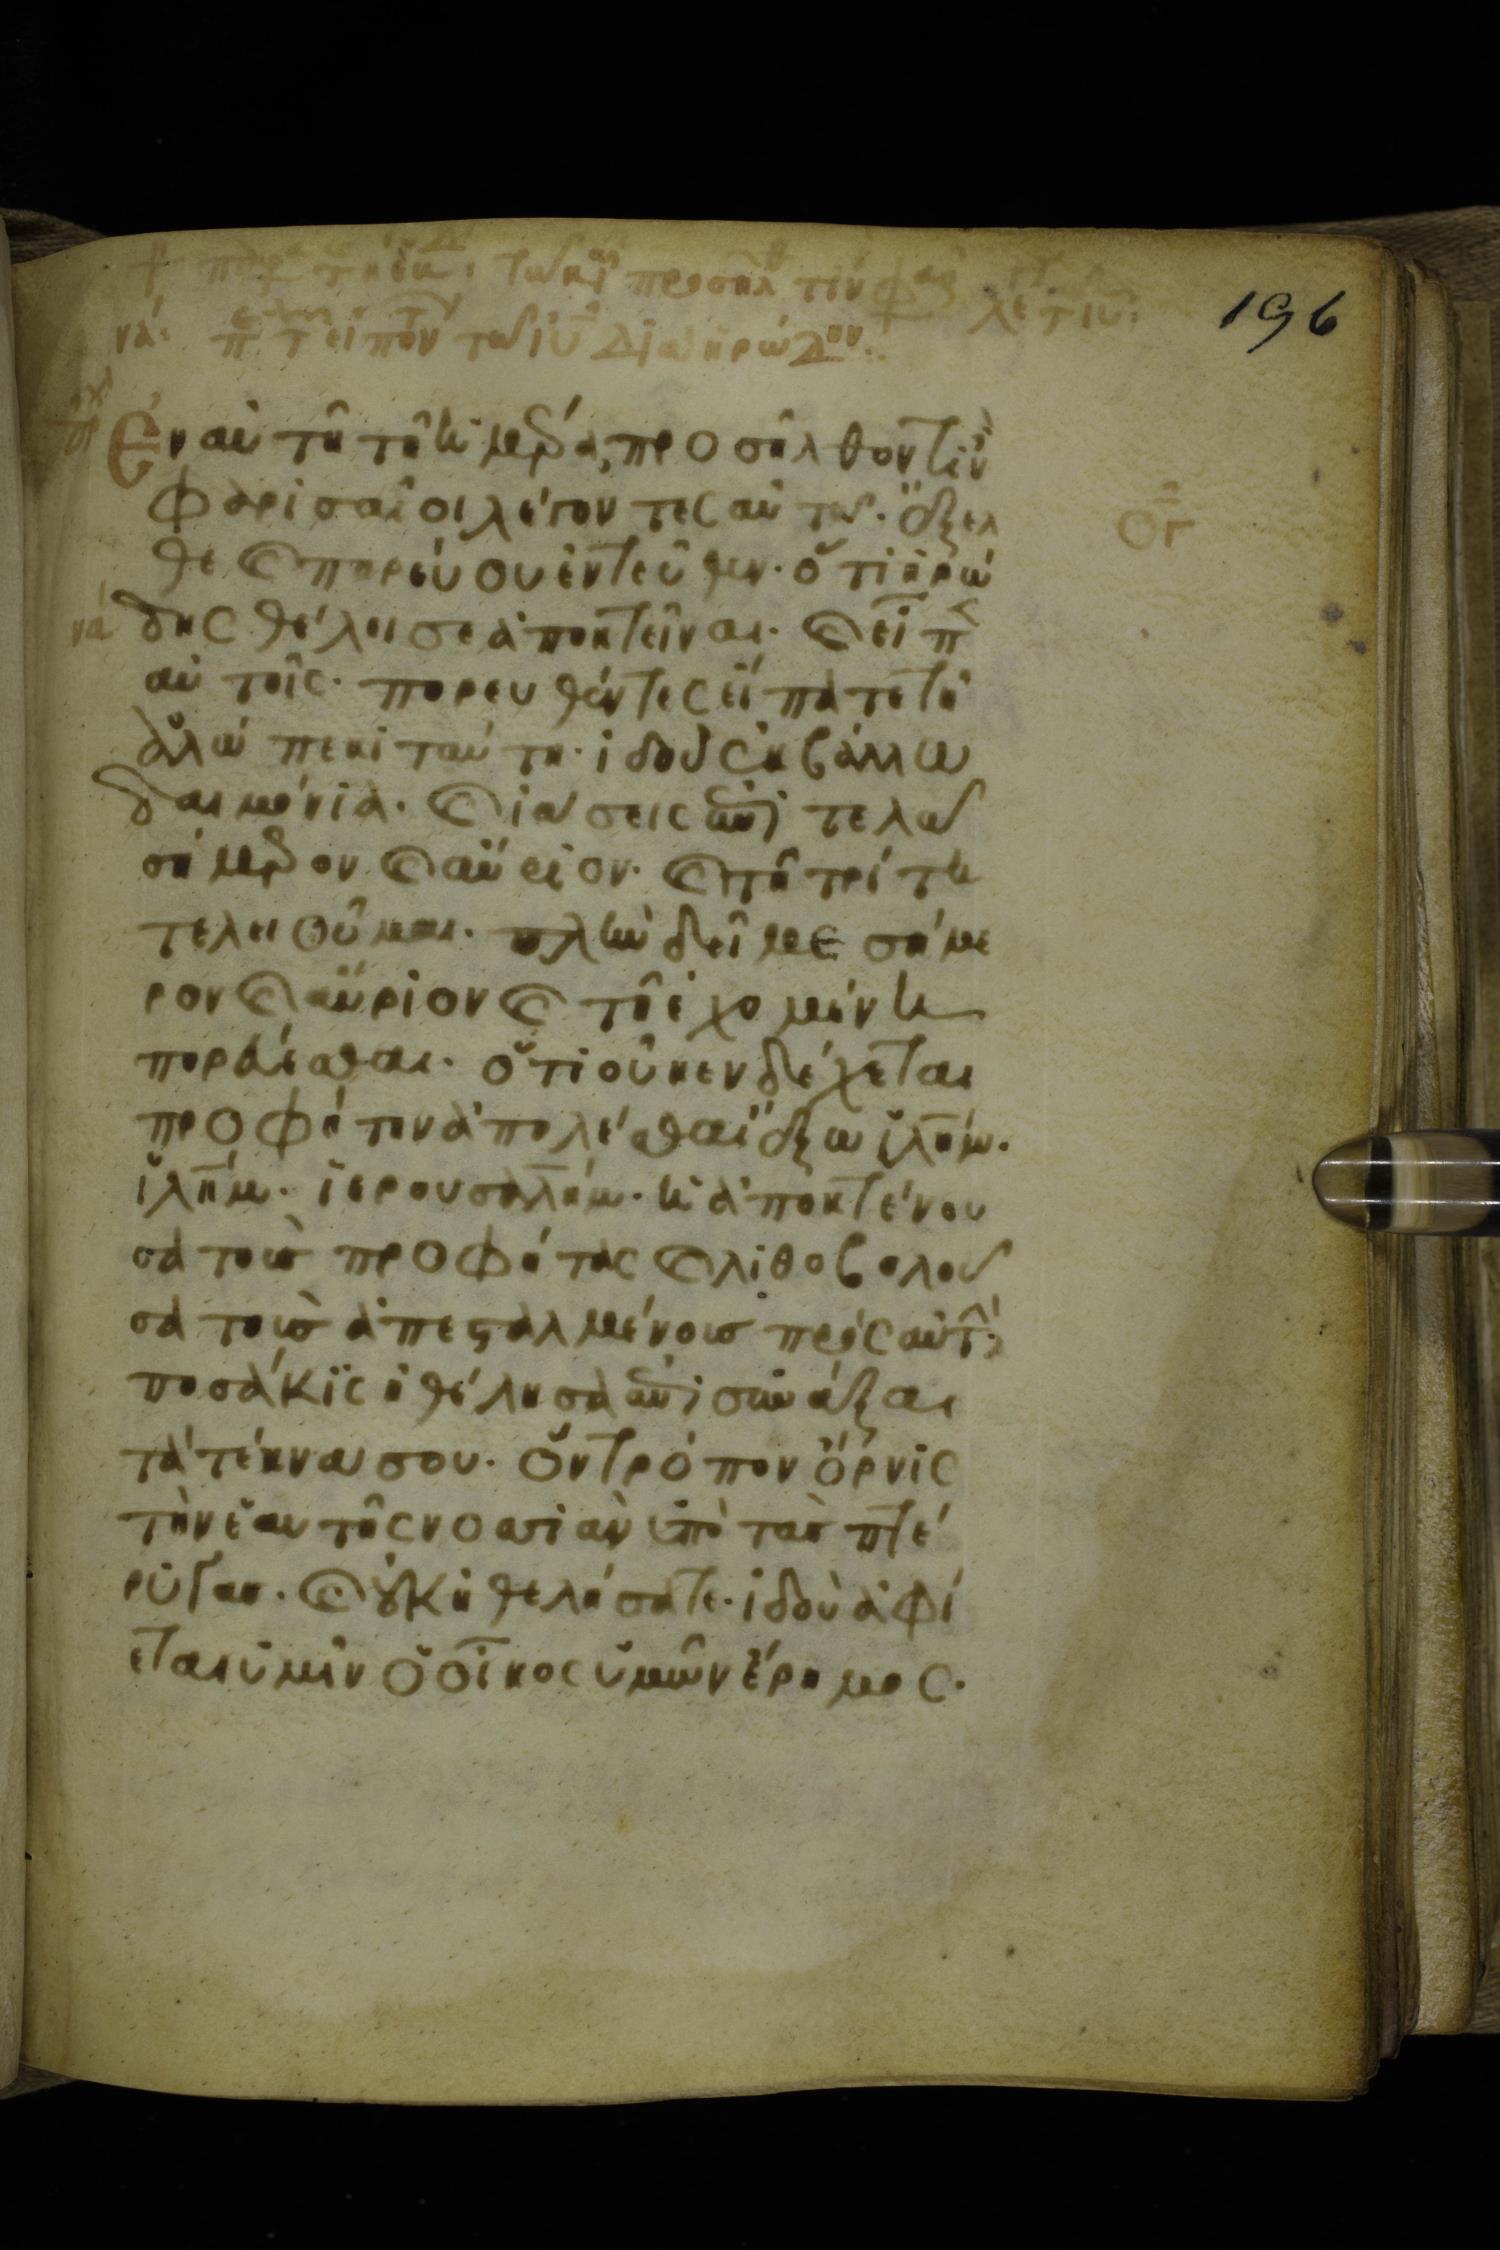 196
νδ: π τ ειπον τω ιυ δι α ηρώδην:
Ἐν αὐτῆ τῆ ἡμέρα, προσῆλθόν τινὲς
Φαρισαῖοι λέγοντες αὐτῶ· ἔξελ
θε καὶ πορεύου ἐντεῦθεν· ὅτι ἡρώ
νδ
δης θέλει σε ἀποκτεῖναι· καὶ εἶπεν
αὐτοῖς· πορευθέντες εἴπατε τῆ
ἀλώπεκι ταύτη· ἰδοὺ ἐκβάλλω
δαιμόνια· καὶ ἰάσεις ἐπιτελῶ
σήμερον καὶ αὔριον· καὶ τῆ τρίτη
τελειοῦμαι· πλὴν δεῖ με σήμε
ρον καὶ αὔριον καὶ τῆ ἐχομένη
πορεύεσθαι· ὅτι οὐκ ενδέχεται
προφήτην ἀπολέσθαι ἔξω ἰλῆμ·
ἰλῆμ· ἰερουσαλῆμ· ἡ ἀποκτένου
σα τοὺς προφήτας καὶ λιθοβολοῦ
σα τοὺς ἀπεσταλμένους πρὸς αὐτήν·
ποσάκις ἠθέλησα ἐπισυνάξαι
τὰ τέκνα σου· ὃν τρόπον ὄρνις
τὴν ἑαυτῆς νοσσιὰν ὑπὸ τὰς πτέ
ρυγας· καὶ οὐκ ἠθελήσατε· ἰδοὺ ἀφί
εται ὑμῖν ὁ οἶκος ὑμῶν ἔρημος·